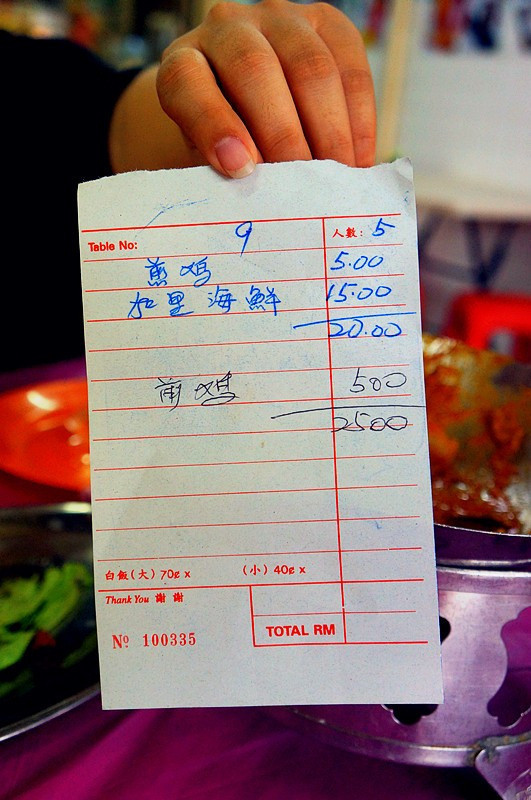 Table No: 9 人數: 5
煎鸡 5.00
加里海鮮 15.00
20.00
煎鸡 500
2500
白飯(大) 70¢ x (小) 40¢ x
Thank You 謝謝
TOTAL RM
Nº 100335